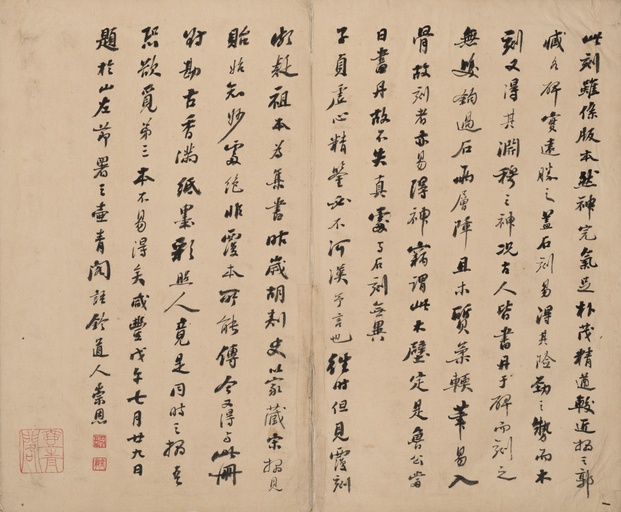 此刻雖係版本然神完氣足朴茂精遒較近搨之郭
臧各碑實遠勝之蓋石刻易得其險勁之勢而木
刻又得其淵穆之神況古人皆書丹于碑而刻之
無雙鉤過石兩層障且木質柔輭筆易入
骨故刻者亦易得神竊謂此木壁定是魯公當
日書丹故不失真處与石刻無異
子貞虛心精鑒必不河漢予言也往時但見覆刻
頗疑祖本為集書昨歲胡刺史以家藏宋搨見
貽始知妙處絕非覆本所能傳今又得与此冊
對勘古香滿紙墨彩照人竟是同時之搨吾
恐欲覓第三本不易得矣咸豐戊午七月廿九日
題於山左節署之壺青閣註鈴道人崇恩